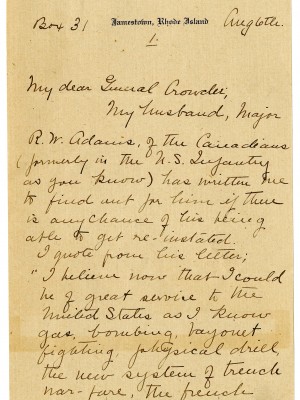 Box 31 Jamestown, Rhode Island Aug 6th.
1.
My dear General Crowder,
My husband, Major
R.W. Adams, of the Canadians
(formerly in the U.S. Infantry
as you know) has written me
to find out for him if there
is any chance of his being
able to get re-instated.
I quote from his letter;
"I believe now that I could
be of great service to the
United States as I know
gas, bombing, bayonet
fighting, physical drill,
the new system of trench
war-fare, the french